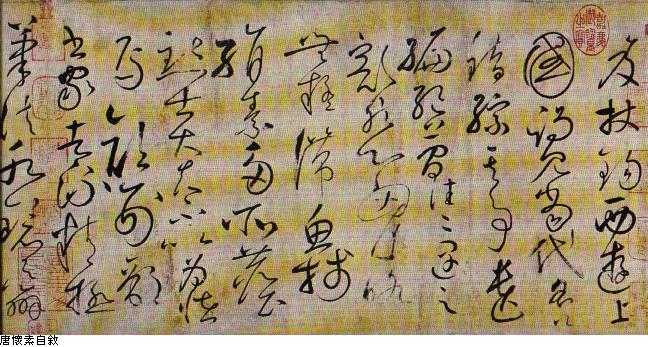 笈杖錫西遊上
國謁見當代名公
錯綜其事遺
編絕簡往往遇之
豁然心胸略
無疑滯魚牋
絹素多所塵
點士大夫不以為怪
焉顏刑部
書家者流精極
筆法水鏡之辨
唐懷素自敘